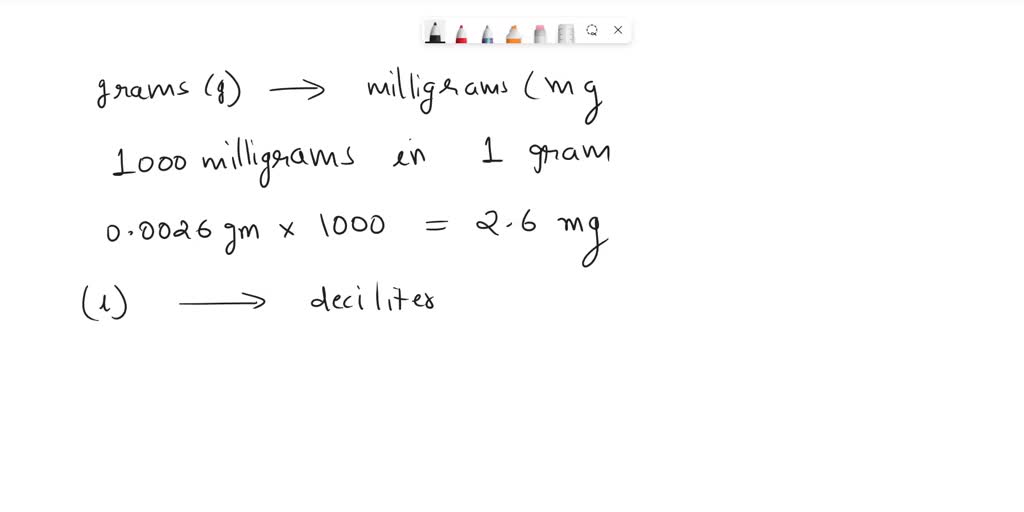 grams (g) → milligrams (mg
1000 milligrams in 1 gram
0.0026 gm × 1000 = 2.6 mg
(l) → deciliter